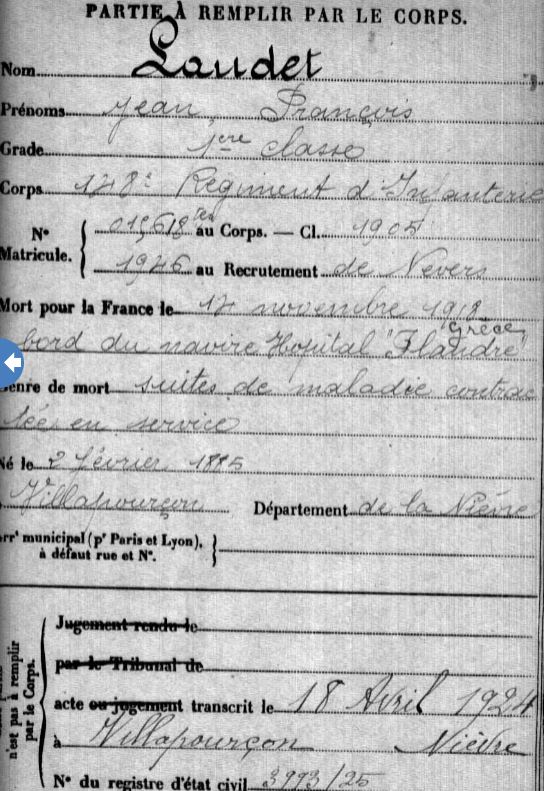 PARTIE À REMPLIR PAR LE CORPS.
Nom Laudet
Prénoms Jean, François
Grade 1ère classe
Corps 148e Régiment d'Infanterie
N° Matricule. { au Corps. — Cl. 1905
1946 au Recrutement de Nevers
Mort pour la France le 14 novembre 1918
Grèce
bord du navire Hopital "Flandre"
Genre de mort suites de maladie contrac
tée en service
Né le 2 février 1885
Villapourçon Département de la Nièvre
arrt municipal (pr Paris et Lyon), }
à défaut rue et N°.
n'est pas à remplir par le Corps.
Jugement rendu le
par le Tribunal de
acte ou jugement transcrit le 18 Avril 1924
à Villapourçon Nièvre
N° du registre d'état civil 3993/25